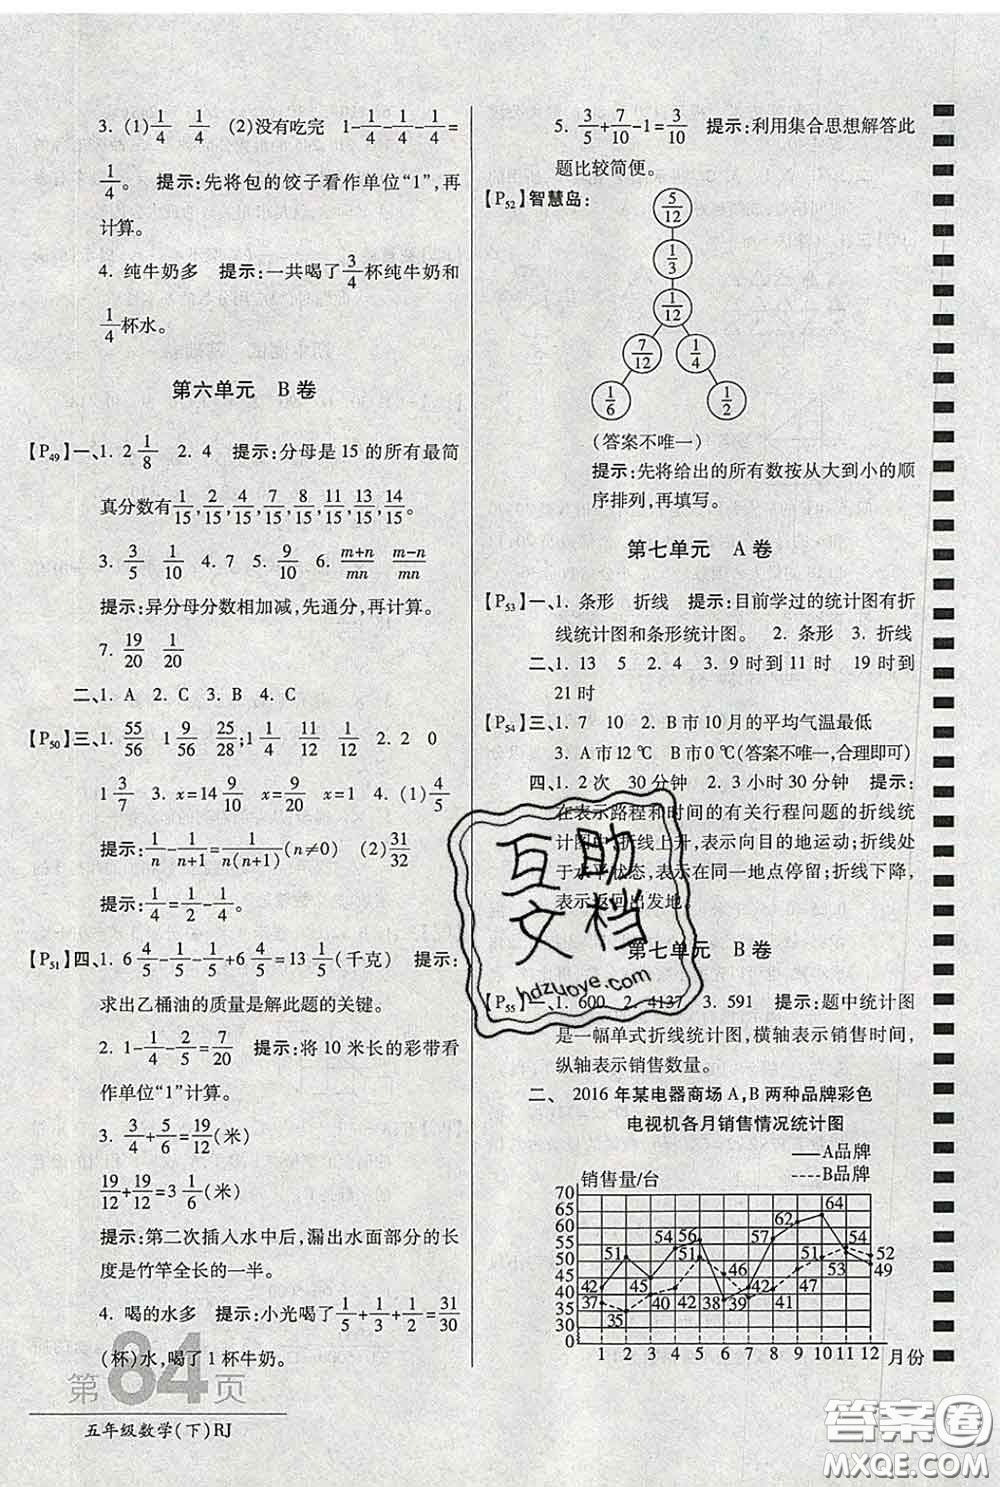 3. (1) 1/4  1/4  (2)没有吃完  1-1/4-1/4-1/4=
1/4。 提示:先将包的饺子看作单位“1”,再
计算。
4. 纯牛奶多  提示:一共喝了3/4杯纯牛奶和
1/4杯水。
第六单元  B卷
【P49】一、1. 2  1/8  2. 4  提示:分母是 15 的所有最简
真分数有1/15,2/15,4/15,7/15,8/15,11/15,13/15,14/15。
3. 3/5  1/10  4. 7  5. 9/10  6. (m+n)/mn  (m-n)/mn
提示:异分母分数相加减,先通分,再计算。
7. 19/20  1/20
二、1. A  2. C  3. B  4. C
【P50】三、1. 55/56  1 9/56  25/28;1 1/4  11/12  2. 2  0
1 3/7  3. x=14 9/10  x=9/20  x=1  4. (1)4/5
提示:1/n-1/(n+1)=1/(n(n+1))(n≠0)  (2)31/32
提示:1/4=1/2-1/4。
【P51】四、1. 6 4/5-1/5-1/5+6 4/5=13 1/5(千克)  提示:
求出乙桶油的质量是解此题的关键。
2. 1-1/4-2/5=7/20  提示:将 10 米长的彩带看
作单位“1”计算。
3. 3/4+5/6=19/12(米)
19/12+19/12=3 1/6(米)
提示:第二次插入水中后,漏出水面部分的长
度是竹竿全长的一半。
4. 喝的水多  提示:小光喝了1/5+1/3+1/2=31/30
(杯)水,喝了 1 杯牛奶。
第84页
五年级数学(下)RJ
5. 3/5+7/10-1=3/10  提示:利用集合思想解答此
题比较简便。
【P52】智慧岛:
5/12
1/3
1/12
7/12  1/4
1/6  1/2
(答案不唯一)
提示:先将给出的所有数按从大到小的顺
序排列,再填写。
第七单元  A卷
【P53】一、1. 条形  折线  提示:目前学过的统计图有折
线统计图和条形统计图。  2. 条形  3. 折线
二、1. 13  5  2. 4  3. 9 时到 11 时  19 时到
21 时
【P54】三、1. 7  10  2. B 市 10 月的平均气温最低
3. A 市 12 ℃  B 市 0 ℃(答案不唯一,合理即可)
四、1. 2 次  30 分钟  2. 3 小时 30 分钟  提示:
在表示路程和时间的有关行程问题的折线统
计图中,折线上升,表示向目的地运动;折线处
于水平状态,表示在同一地点停留;折线下降,
表示返回出发地。
第七单元  B卷
【P55】一、1. 600  2. 4137  3. 591  提示:题中统计图
是一幅单式折线统计图,横轴表示销售时间,
纵轴表示销售数量。
二、 2016 年某电器商场 A,B 两种品牌彩色
电视机各月销售情况统计图
A品牌
销售量/台  B品牌
70
65
60
55
50
45
40
35
30
25
20
15
10
5
0
42 51 45 54 56 38 42 57 62 64 54 49
37 35 40 42 51 46 39 41 47 51 53 52
1 2 3 4 5 6 7 8 9 10 11 12 月份
互助
文档
hdzuoye.com
答案圈
MXQE.COM